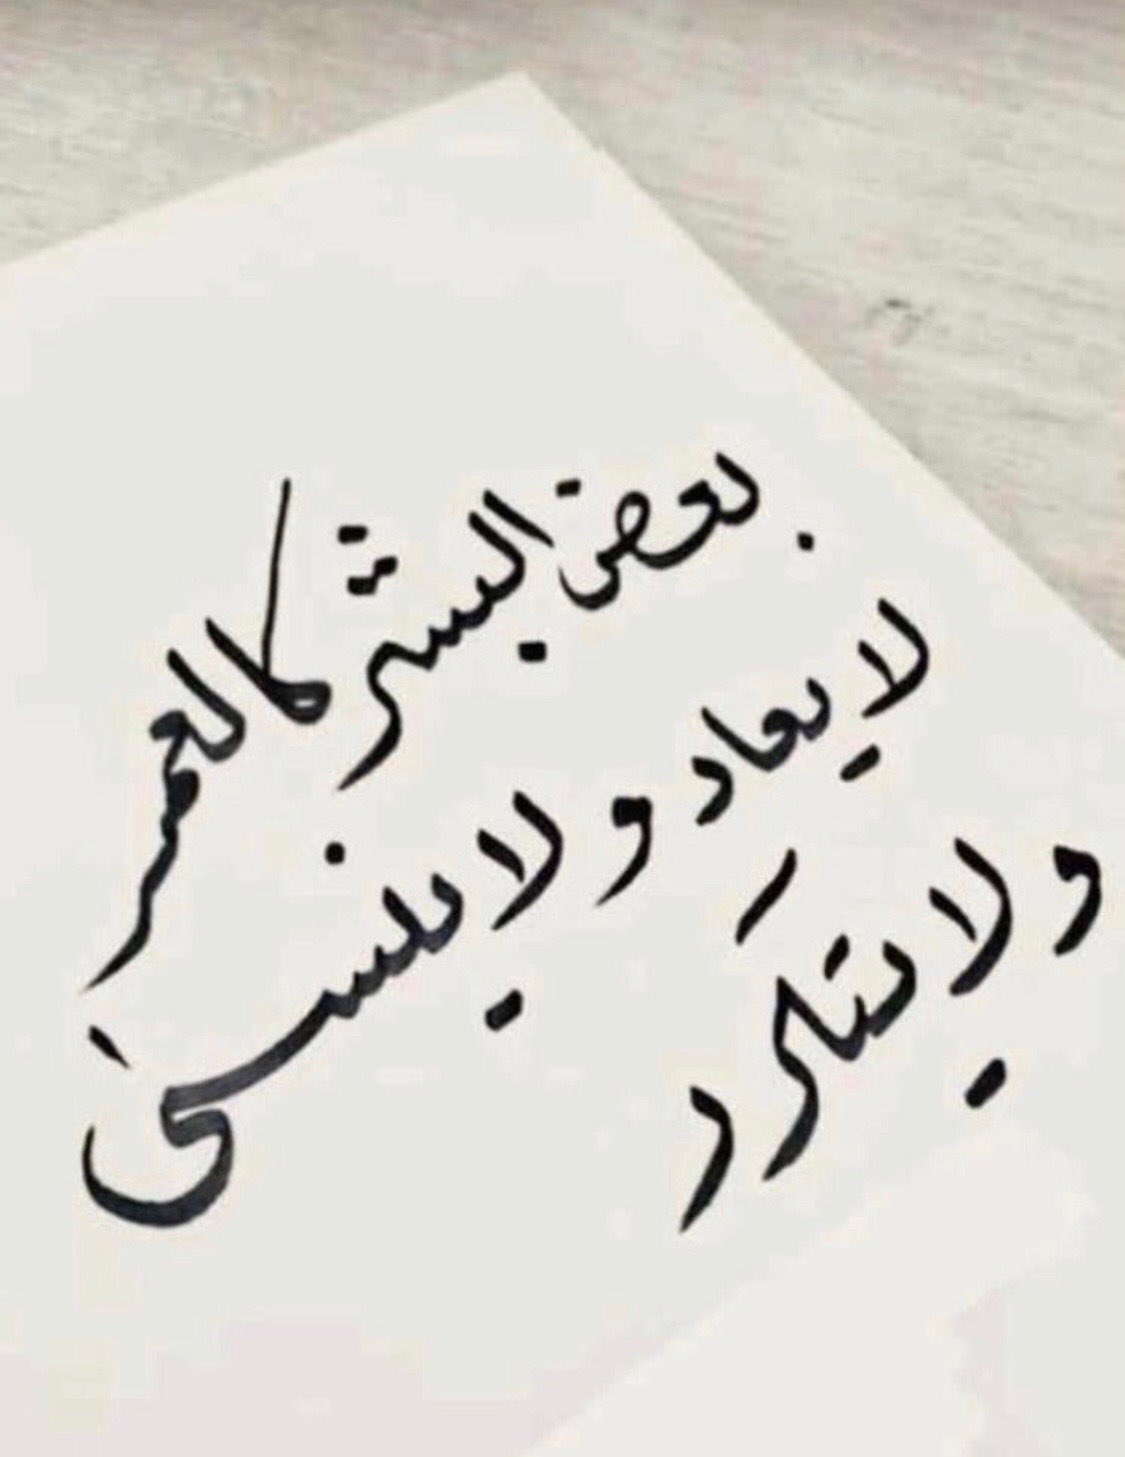 بعض البشر كالعمر
لا يعاد ولا ينسى
ولا يتكرر